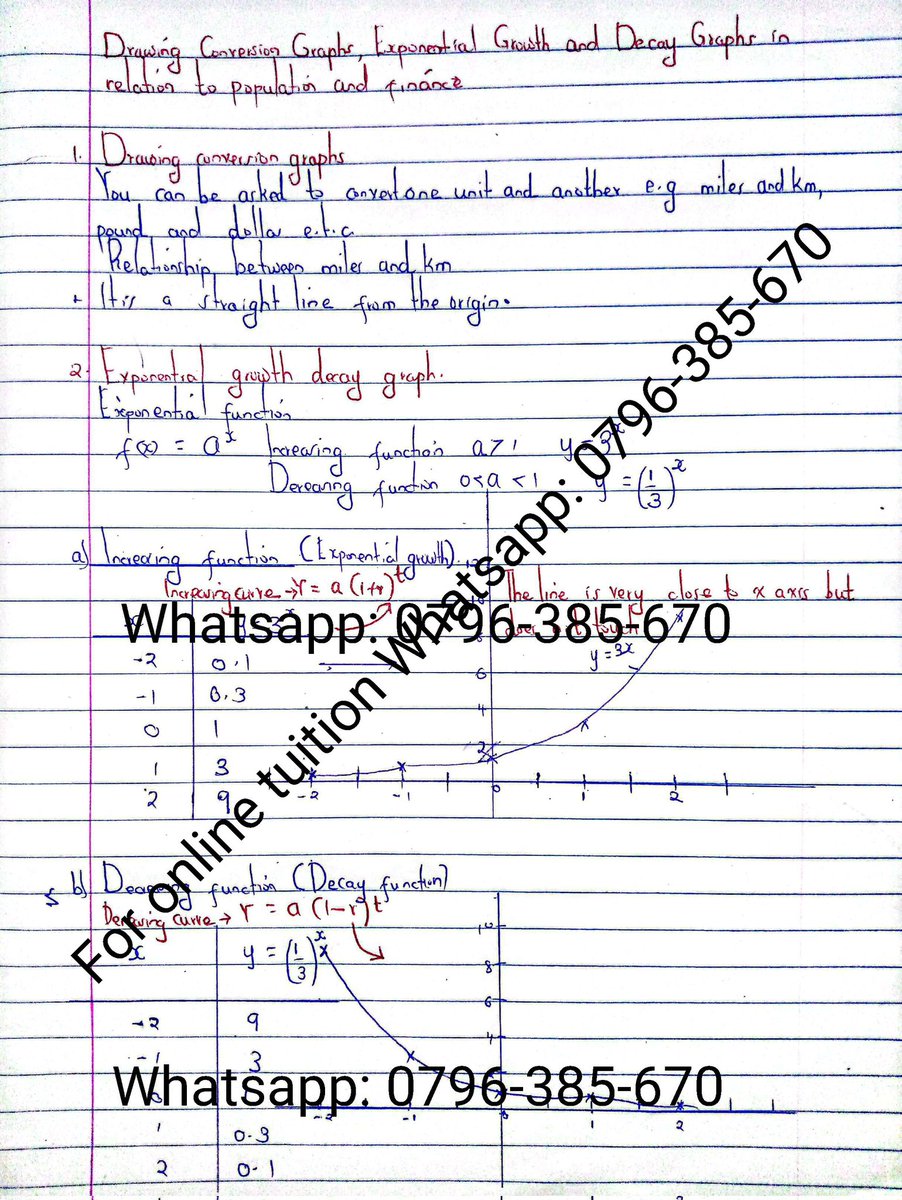 Drawing Conversion Graphs, Exponential Growth and Decay Graphs in
relation to population and finance
1. Drawing conversion graphs
You can be asked to convert one unit and another e.g miles and km,
pound and dollar e.t.c
Relationship between miles and km
It is a straight line from the origin.
2. Exponential growth decay graph.
Exponential function
f(x) = a^x Increasing function a>1 y = 3^x
Decreasing function 0<a<1 y = (1/3)^x
a) Increasing function (Exponential growth).
Increasing curve → Y = a (1+r)^t
The line is very close to x axis but
touch
y = 3x
-2 0.1
-1 0.3
0 1
1 3
2 9
6
4
2
-2 -1 0 1 2
b) function (Decay function)
Decreasing curve → Y = a (1-r)^t
x y = (1/3)^x
-2 9
-1 3
1 0.3
2 0.1
10
8
6
4
-2 -1 0 1 2
For online tuition Whatsapp: 0796-385-670
Whatsapp: 0796-385-670
Whatsapp: 0796-385-670